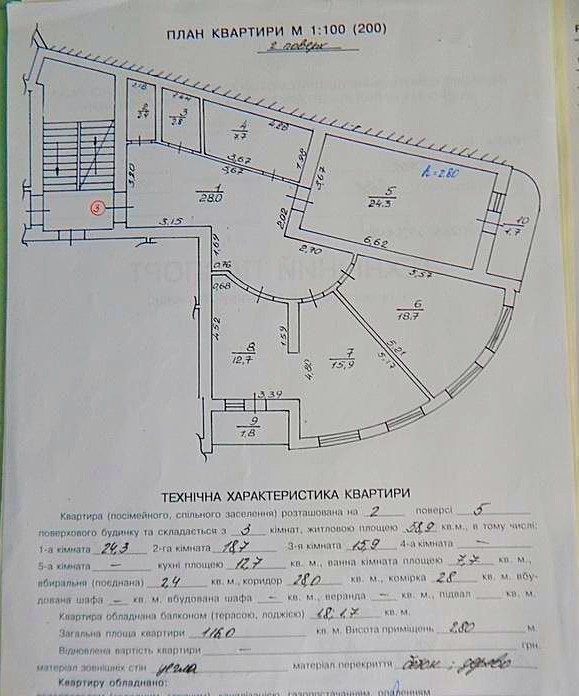 ПЛАН КВАРТИРИ М 1:100 (200)
2 поверх
1,18
2
2,4
3
2,8
4
7,7
2,28
1,88
3,67
3,67
3,67
h=2.80
5
24.3
10
1.7
3,20
1
28.0
3
3,15
2,02
6,62
1,69
2,70
3,57
0,76
0,68
6
18.7
4,52
1,59
8
12,7
7
15,9
4,80
5,21
5,17
3,39
9
1,8
ТЕХНІЧНА ХАРАКТЕРИСТИКА КВАРТИРИ
Квартира (посімейного, спільного заселення) розташована на 2 поверсі 5
поверхового будинку та складається з 3 кімнат, житловою площею 58,9 кв.м., в тому числі:
1-а кімната 24,3 2-га кімната 18,7 3-я кімната 15,9 4-а кімната —
5-а кімната — кухні площею 12,7 кв. м., ванна кімната площею 7,7 кв. м.,
вбиральня (поєднана) 2,4 кв. м., коридор 28,0 кв. м., комірка 2,8 кв. м. вбу-
дована шафа — кв. м. вбудована шафа — кв. м., веранда — кв. м., підвал кв. м.
Квартира обладнана балконом (терасою, лоджією) 1,8; 1,7 кв. м.
Загальна площа квартири 116,0 кв. м. Висота приміщень 2,80 м.
Відновлена вартість квартири — грн.
матеріал зовнішніх стін цегла матеріал перекриття дерево
Квартиру обладнано: